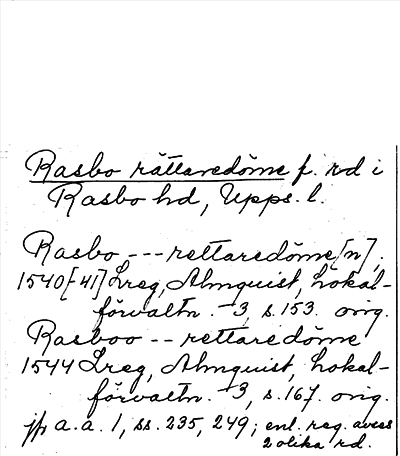 Rasbo rättaredöme f. rd i
Rasbo hd, Upps. l.
Rasbo --- rettaredöme[n],
1540[-41] Lreg, Almquist, Lokal-
förvaltn. -3, s. 153. orig.
Rasboo -- rettaredöme
1544 Lreg, Almquist, Lokal-
förvaltn. -3, s. 167. orig.
jfr a.a. 1, ss. 235, 249; enl. reg. avses
2 olika rd.